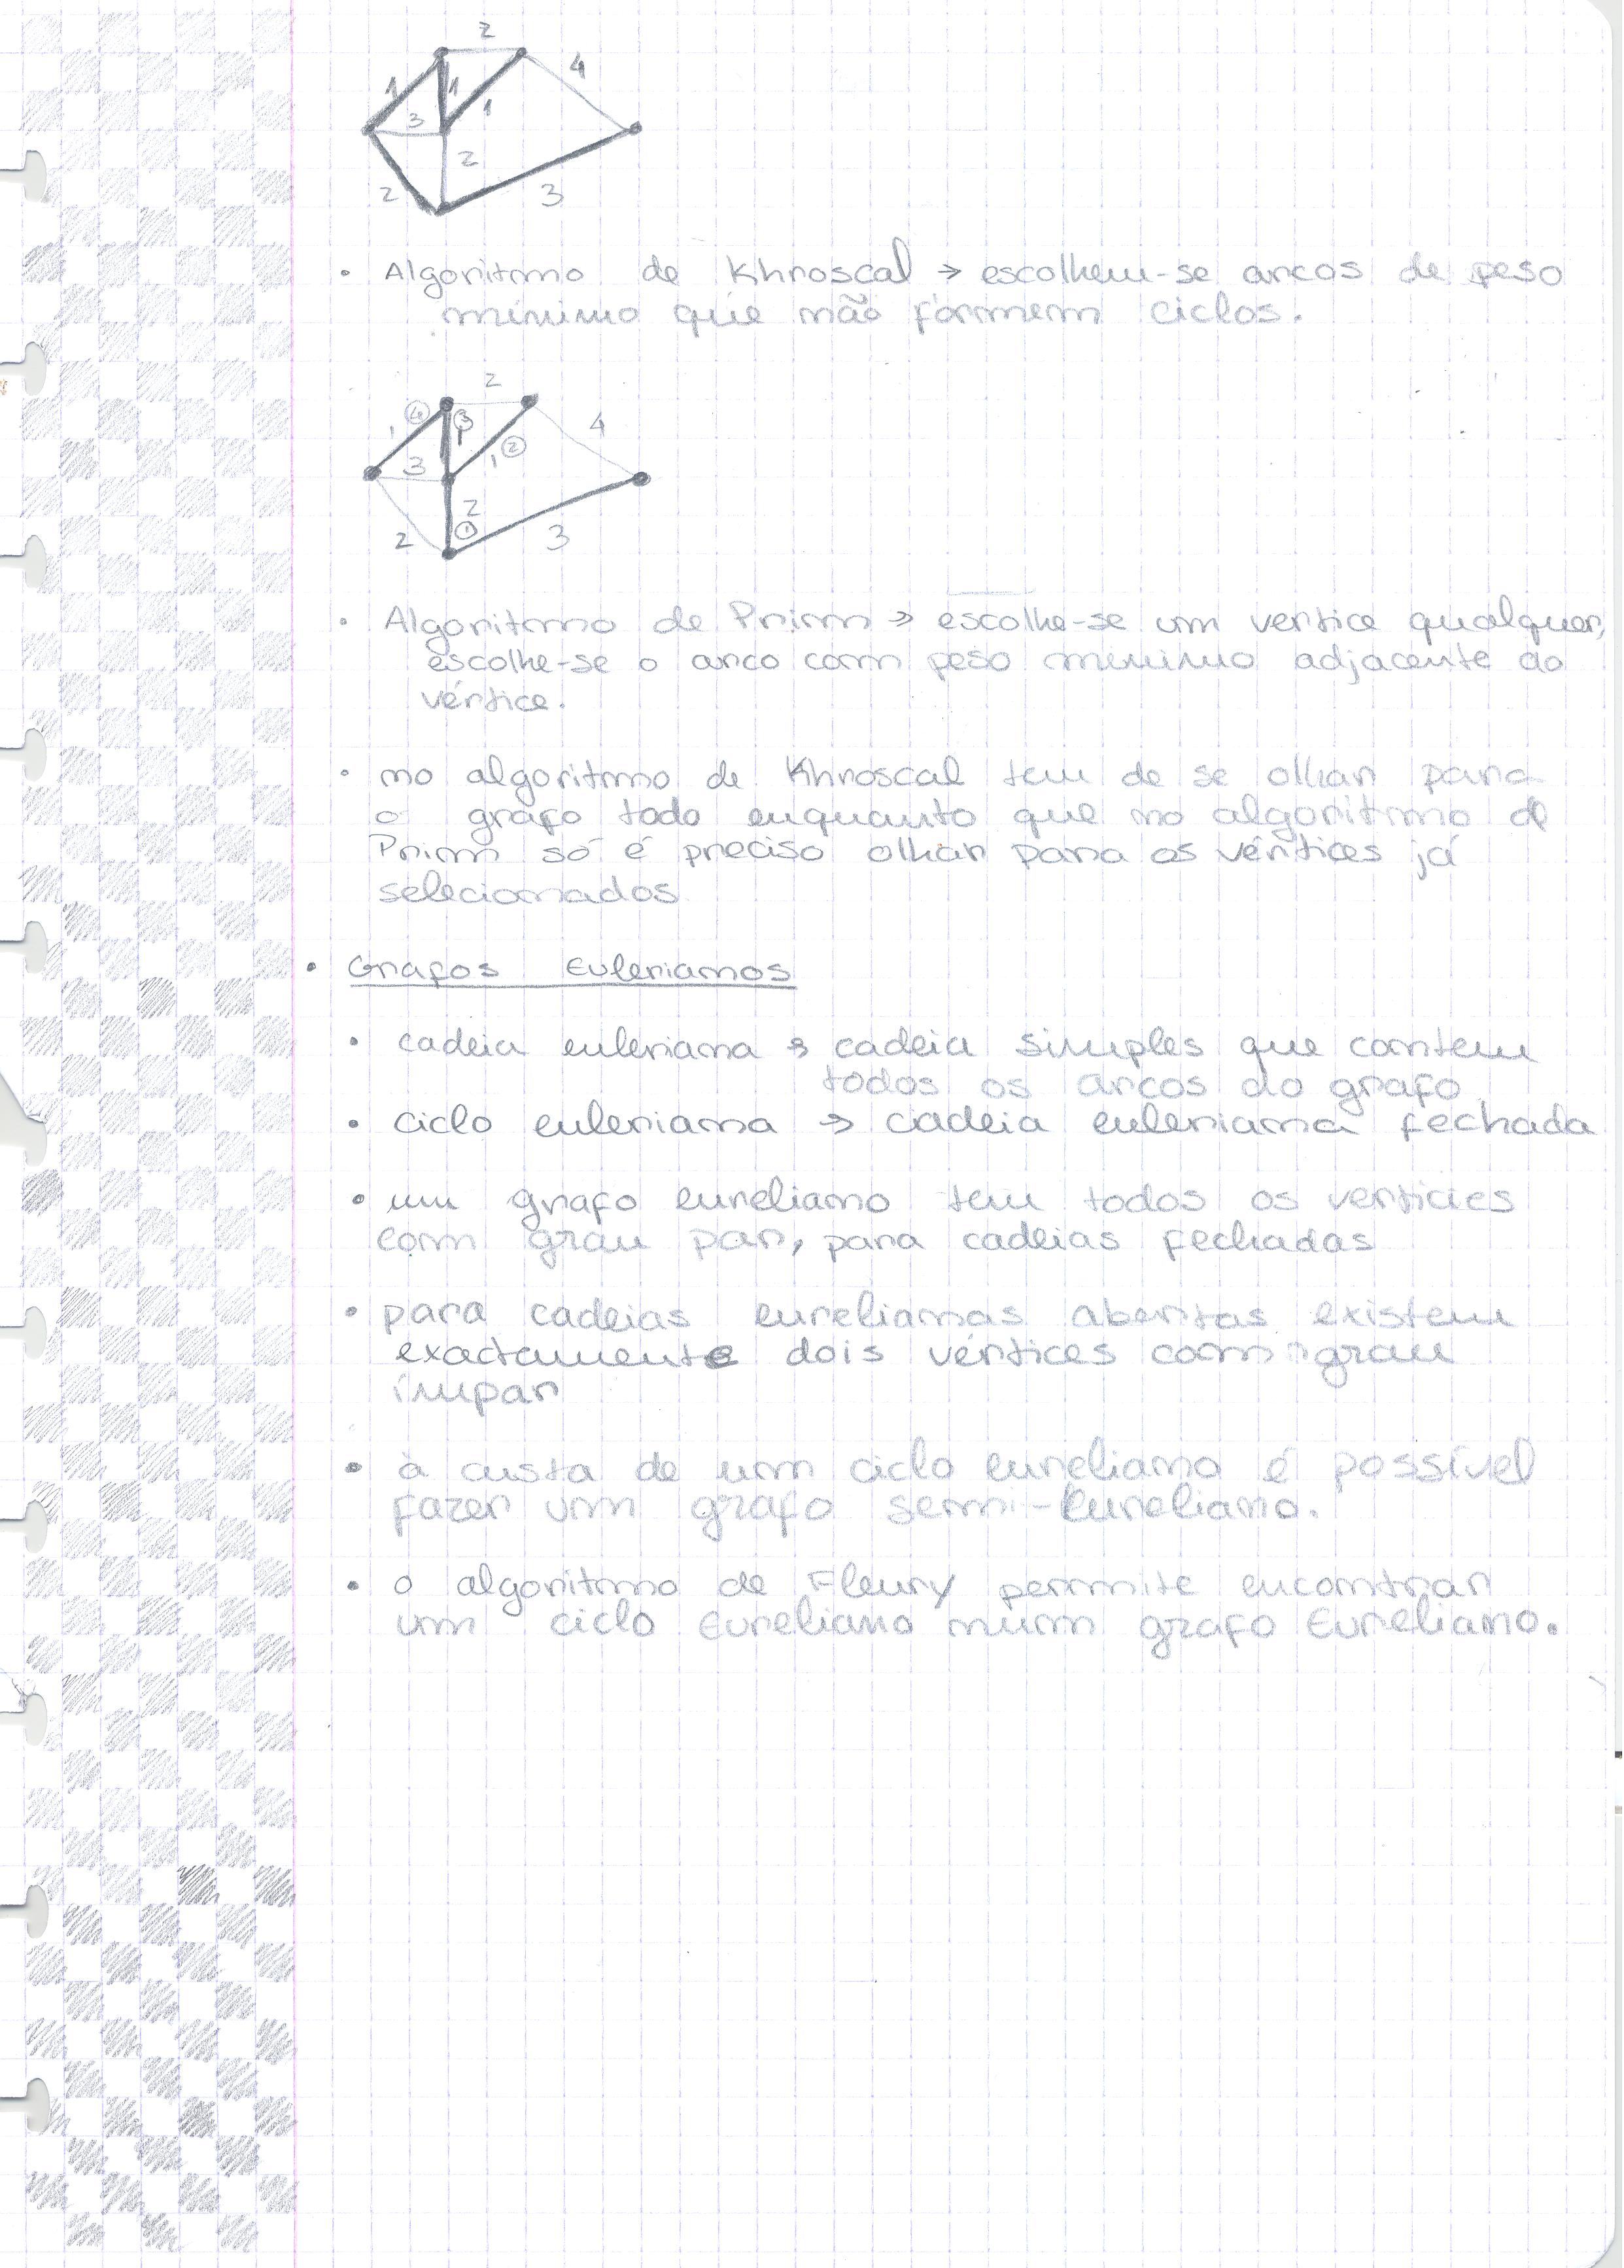 2
4
1
1
1
3
2
2
3
• Algoritmo de Khroscal → escolhem-se arcos de peso
mínimo que não formem ciclos.
2
4
1
4
3
1
2
1
3
2
1
2
3
• Algoritmo de Prim → escolhe-se um vertice qualquer,
escolhe-se o arco com peso minimo adjacente ao
vértice.
• no algoritmo de Khroscal tem de se olhar para
o grafo todo enquanto que no algoritmo de
Prim só é preciso olhar para os vértices já
selecionados
• Grafos Eulerianos
• cadeia euleriana → cadeia simples que contem
todos os arcos do grafo
• ciclo euleriana → cadeia euleriana fechada
• um grafo eureliano tem todos os verticies
com grau par, para cadeias fechadas
• para cadeias eurelianas abertas existem
exactamente dois vértices com grau
ímpar
• à custa de um ciclo eureliano é possível
fazer um grafo semi-Eureliano.
• o algoritmo de Fleury permite encontrar
um ciclo Eureliano num grafo Eureliano.